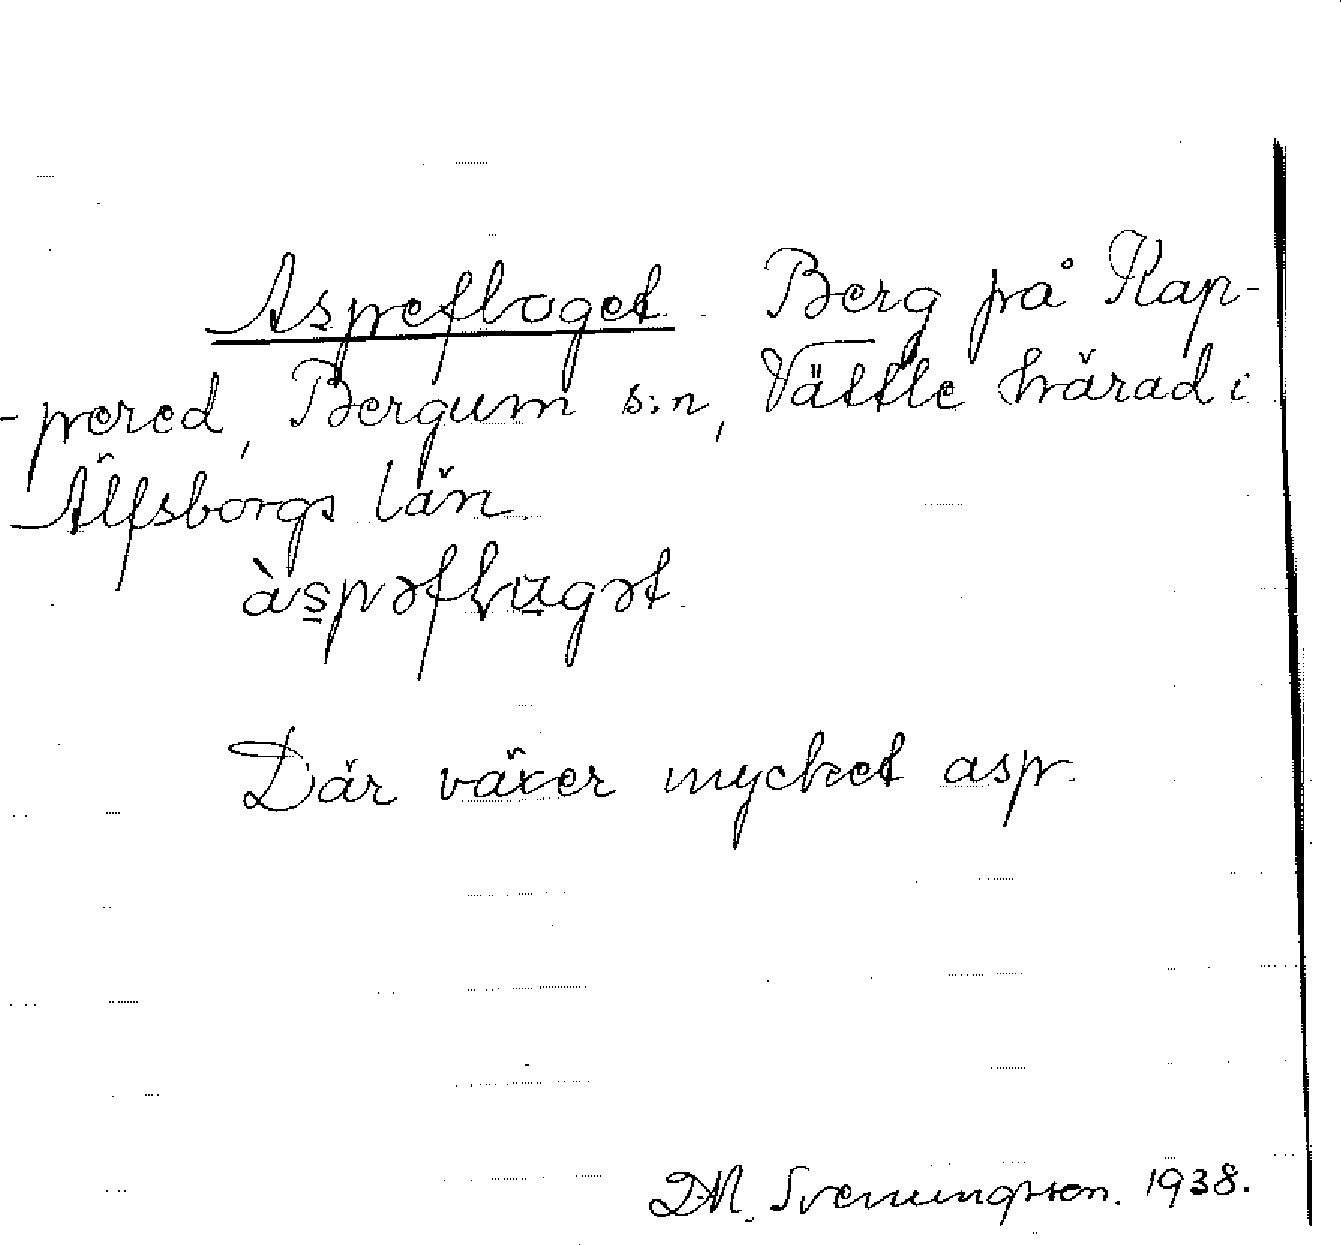 Aspefloget. Berg på Rap-
-pered, Bergum s:n, Vättle härad i
Älfsborgs län.
àspəflɷgət.
Där växer mycket asp.
D.M. Svenningsson. 1938.